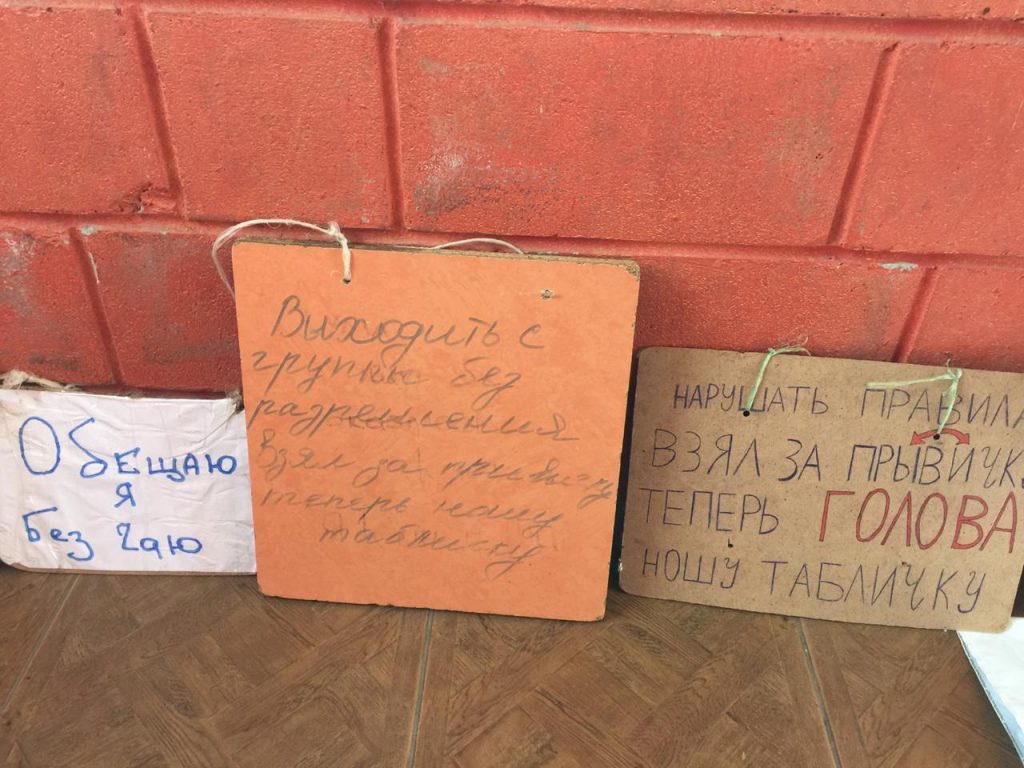 Обещаю
я
без чаю
Выходить с
группы без
разрешения
взял за привычку
теперь ношу
табличку
НАРУШАТЬ ПРАВИЛА
ВЗЯЛ ЗА ПРЫВИЧК
ТЕПЕРЬ ГОЛОВА
НОШУ ТАБЛИЧКУ